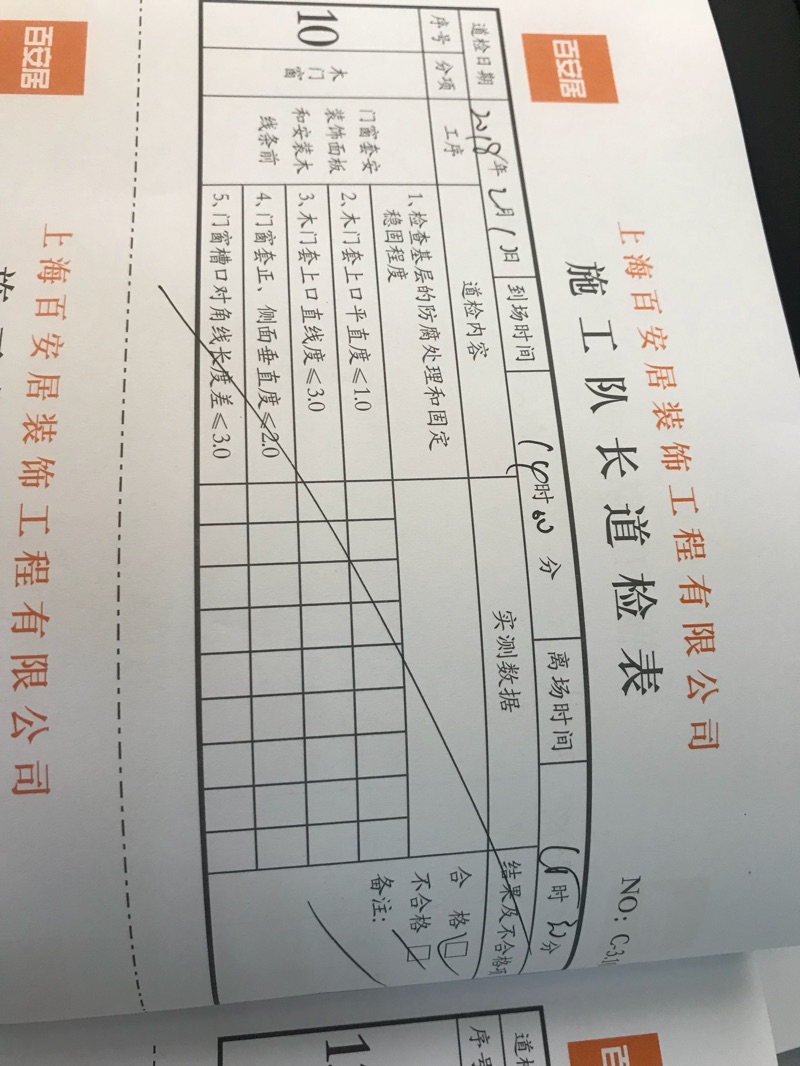 百安居
上海百安居装饰工程有限公司
施工队长道检表
NO: C-3.1
道检日期 2018年2月1日 到场时间 14时 分 离场时间 时 30分
序号 分项 工序 道检内容 实测数据 结果及不合格项
10 木门窗
门窗套安
装饰面板
和安装木
线条前
1、检查基层的防腐处理和固定
稳固程度
2、木门套上口平直度≤1.0
3、木门套上口直线度≤3.0
4、门窗套正、侧面垂直度≤2.0
5、门窗槽口对角线长度差≤3.0
合格 □
不合格 □
备注:
百安居
上海百安居装饰工程有限公司
百安居
道检
序号